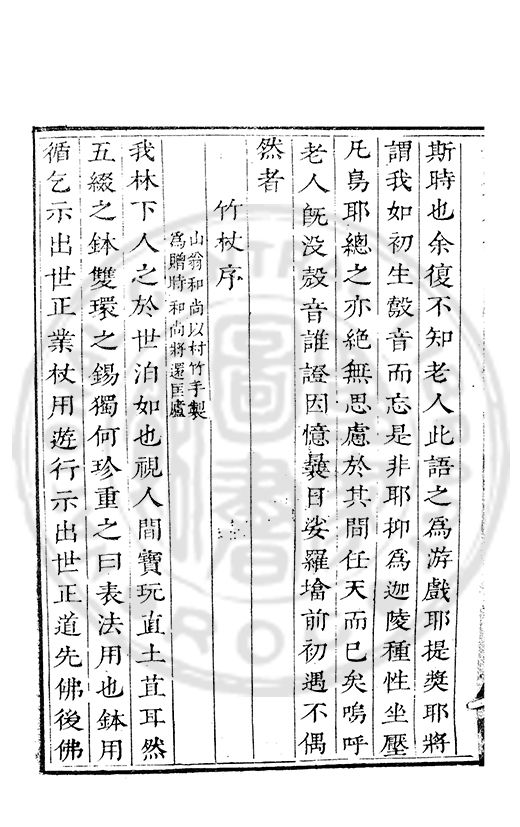 斯時也余復不知老人此語之為游戲耶提獎耶將
謂我如初生鷇音而忘是非耶抑為迦陵種性坐壓
凡鳥耶總之亦絕無思慮於其間任天而已矣嗚呼
老人旣没鷇音誰證因憶曩日娑羅墖前初遇不偶
然者
竹杖序
山翁和尚以村竹手製
為贈時和尚將還匡廬
我林下人之於世泊如也視人間寶玩直土苴耳然
五綴之鉢雙環之錫獨何珍重之曰表法用也鉢用
循乞示出世正業杖用遊行示出世正道先佛後佛